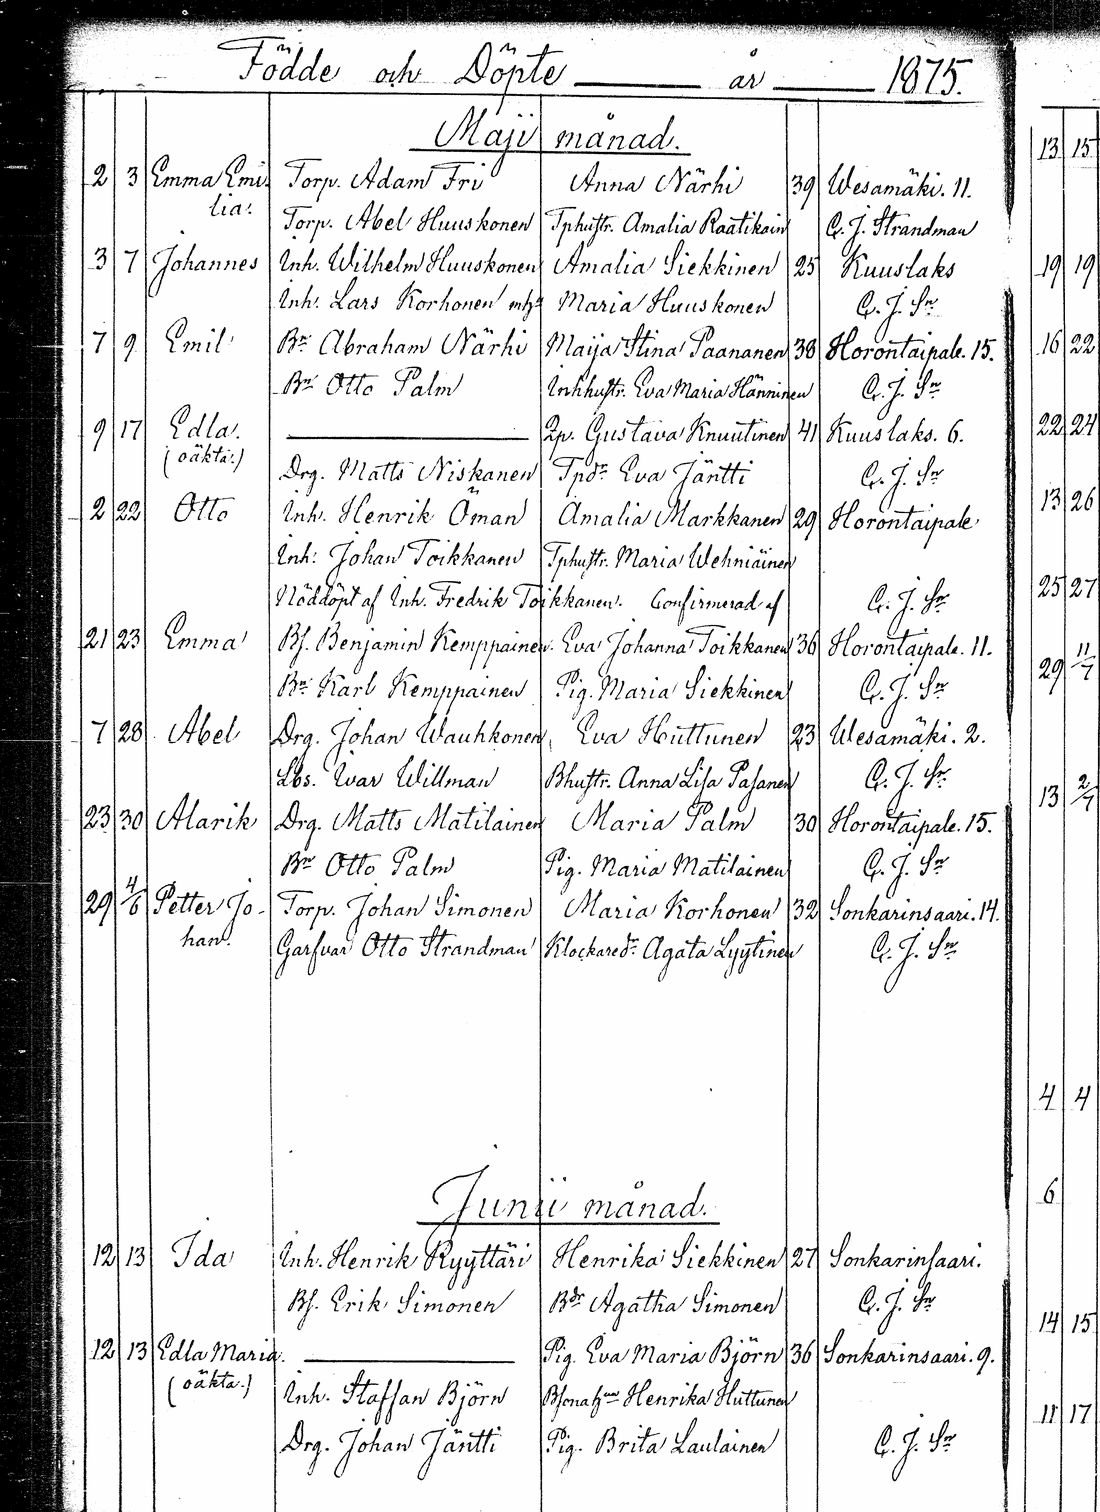 Födde och Döpte år 1875.
Maji månad.
2 3 Emma Emi- Torp. Adam Fri Anna Närhi 39 Wesamäki. 11.
lia. Torp. Abel Huuskonen Tphustr. Amalia Raatikain C. J. Strandman
3 7 Johannes Inh. Wilhelm Huuskonen Amalia Siekkinen 25 Kuuslaks
Inh. Lars Korhonen Maria Huuskonen C. J. Sn
7 9 Emil Bn Abraham Närhi Maija Stina Paananen 38 Horontaipale. 15.
Bn Otto Palm Inhhustr. Eva Maria Hänninen C. J. Sn
9 17 Edla. Qp. Gustava Knuutinen 41 Kuuslaks. 6.
(oäkta.) Drg. Matts Niskanen Tpdr Eva Jäntti C. J. Sn
2 22 Otto Inh. Henrik Öman Amalia Markkanen 29 Horontaipale
Inh. Johan Toikkanen Tphustr. Maria Wehniäinen
Nöddöpt af Inh. Fredrik Toikkanen. Confirmerad af C. J. Sn
21 23 Emma Bs. Benjamin Kemppainen. Eva Johanna Toikkanen 36 Horontaipale. 11.
Bn Karl Kemppainen Pig. Maria Siekkinen C. J. Sn
7 28 Abel Drg. Johan Wauhkonen, Eva Huttunen 23 Wesamäki. 2.
Lbs. Ivar Willman Bhustr. Anna Lisa Pasanen C. J. Sn
23 30 Alarik Drg. Matts Matilainen Maria Palm 30 Horontaipale. 15.
Bn Otto Palm Pig. Maria Matilainen C. J. Sn
29 4/6 Petter Jo- Torp. Johan Simonen Maria Korhonen 32 Sonkarinsaari. 14.
han. Garfvar Otto Strandman Klockaredr Agata Lyytinen C. J. Sn
Junii månad.
12 13 Ida Inh. Henrik Ryyttäri Henrika Siekkinen 27 Sonkarinsaari.
Bs. Erik Simonen Bdr Agatha Simonen C. J. Sn
12 13 Edla Maria. Pig. Eva Maria Björn 36 Sonkarinsaari. 9.
(oäkta.) Inh. Staffan Björn Henrika Huttunen
Drg. Johan Jäntti Pig. Brita Laulainen C. J. Sn
13 15
19 19
16 22
22 24
13 26
25 27
29 11/7
13 2/7
4 4
6
14 15
11 17